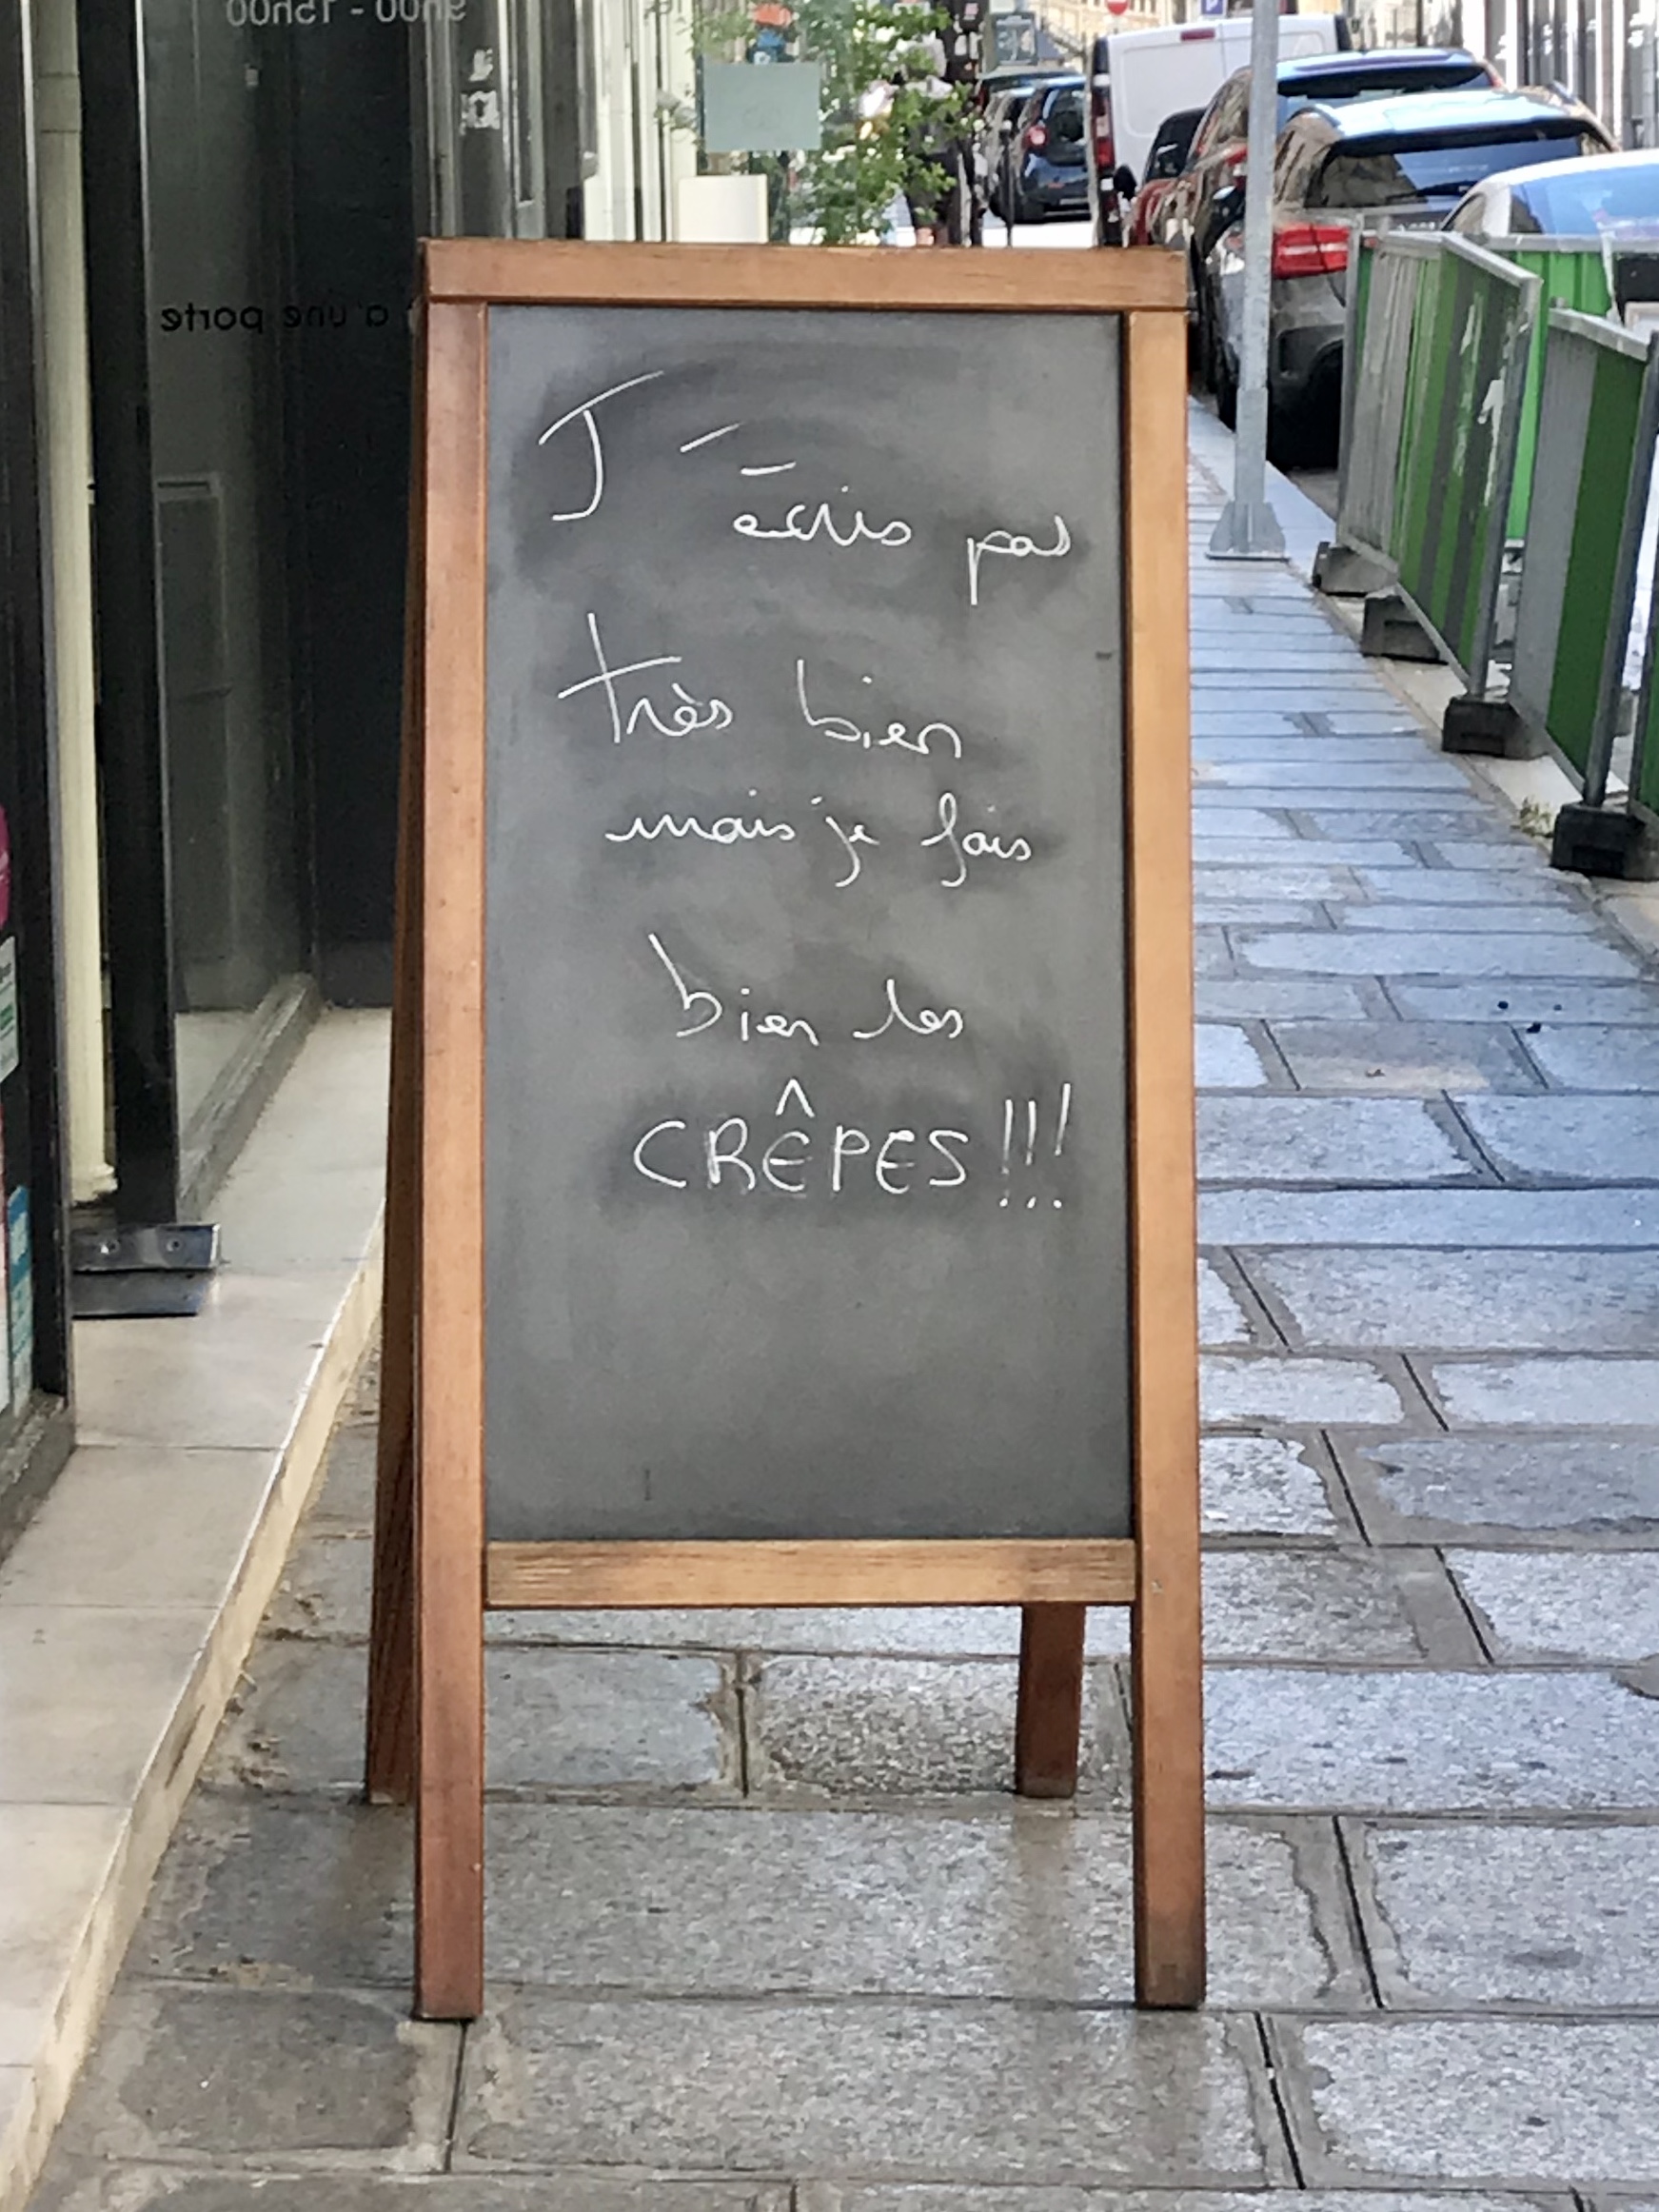 9h00 - 15h00
a une porte
J'écris pas
très bien
mais je fais
bien les
CRÊPES!!!